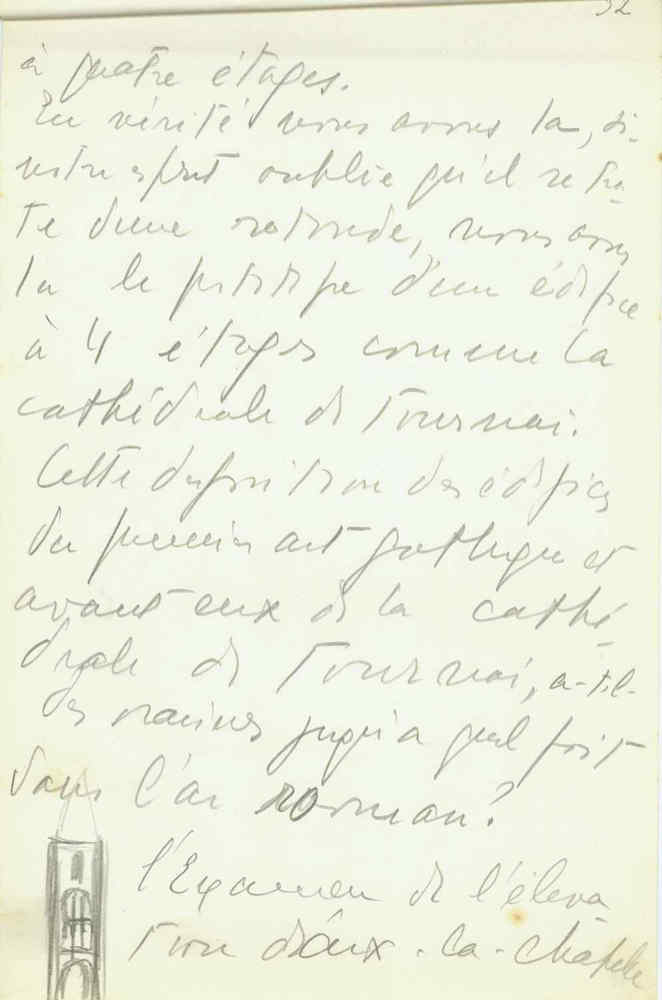 32
à quatre étages.
En vérité vous avons là, si
votre esprit oublie qu'il se trai-
te d'une rotonde, vous avons
là le prototype d'un édifice
à 4 étages comme la
cathédrale de Tournai.
Cette définition des édifices
du premier art gothique et
avant eux de la cathé-
drale de Tournai, a-t-il-
des racines jusqu'à quel point
dans l'art roman?
l'Examen de l'éleva-
tion d'Aix-la-Chapelle